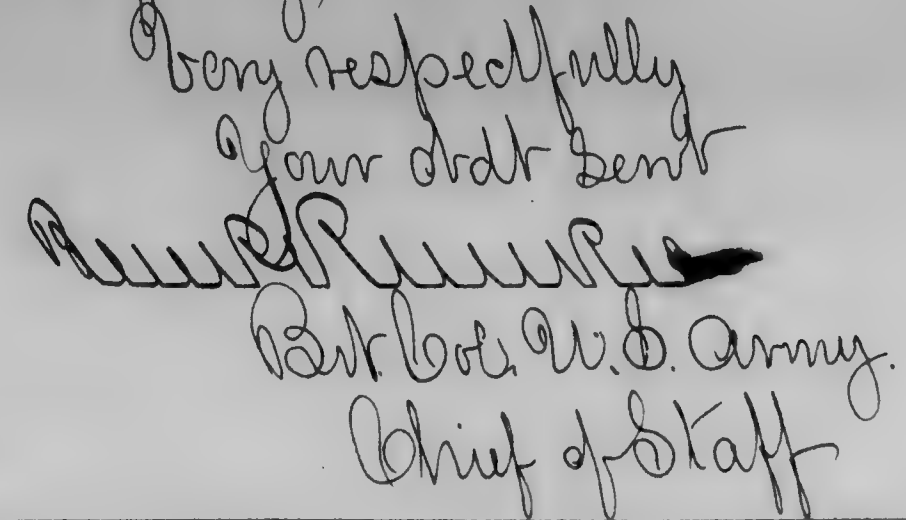 Very respectfully
Your obdt Servt
Bvt. Col. U.S. Army.
Chief of Staff